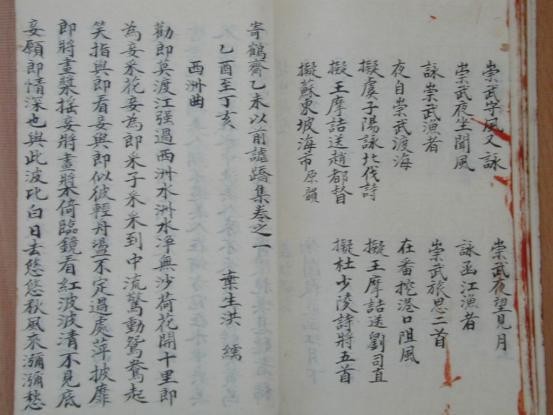 崇武守風又詠
崇武夜望見月
崇武夜坐聞風
詠函江漁者
詠崇武漁者
崇武旅思二首
夜自崇武渡海
在番挖港口阻風
擬虞子陽詠北伐詩
擬王摩詰送劉司直
擬王摩詰送趙都督
擬杜少陵諸將五首
擬蘇東坡海市原韻
寄鶴齋乙未以前謔蹻集卷之一
乙酉至丁亥 葉生洪 繻
西洲曲
勸郎莫渡江強過西洲水洲水渟無沙荷花開十里郎
為妾采花妾為郎采子采采到中流驚動鴛鴦起
笑指與郎看妾與郎似彼輕舟盪不定過處萍披靡
郎將畫槳搖妾將畫槳倚臨鏡看紅波波清不見底
妾願郎情深也與此波比白日去悠悠秋風來瀰瀰愁